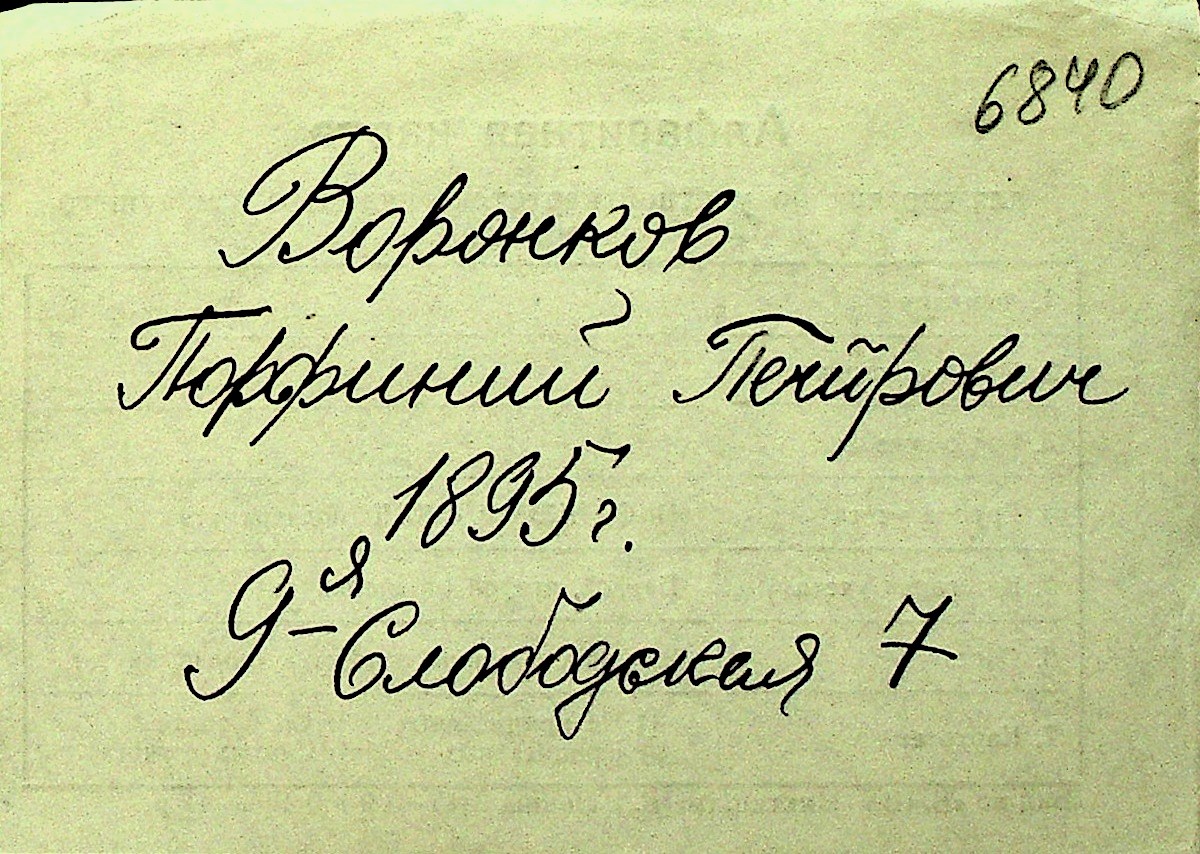 6840
Воронков
Порфиний Петрович
1895 г.
9-я Слободская 7